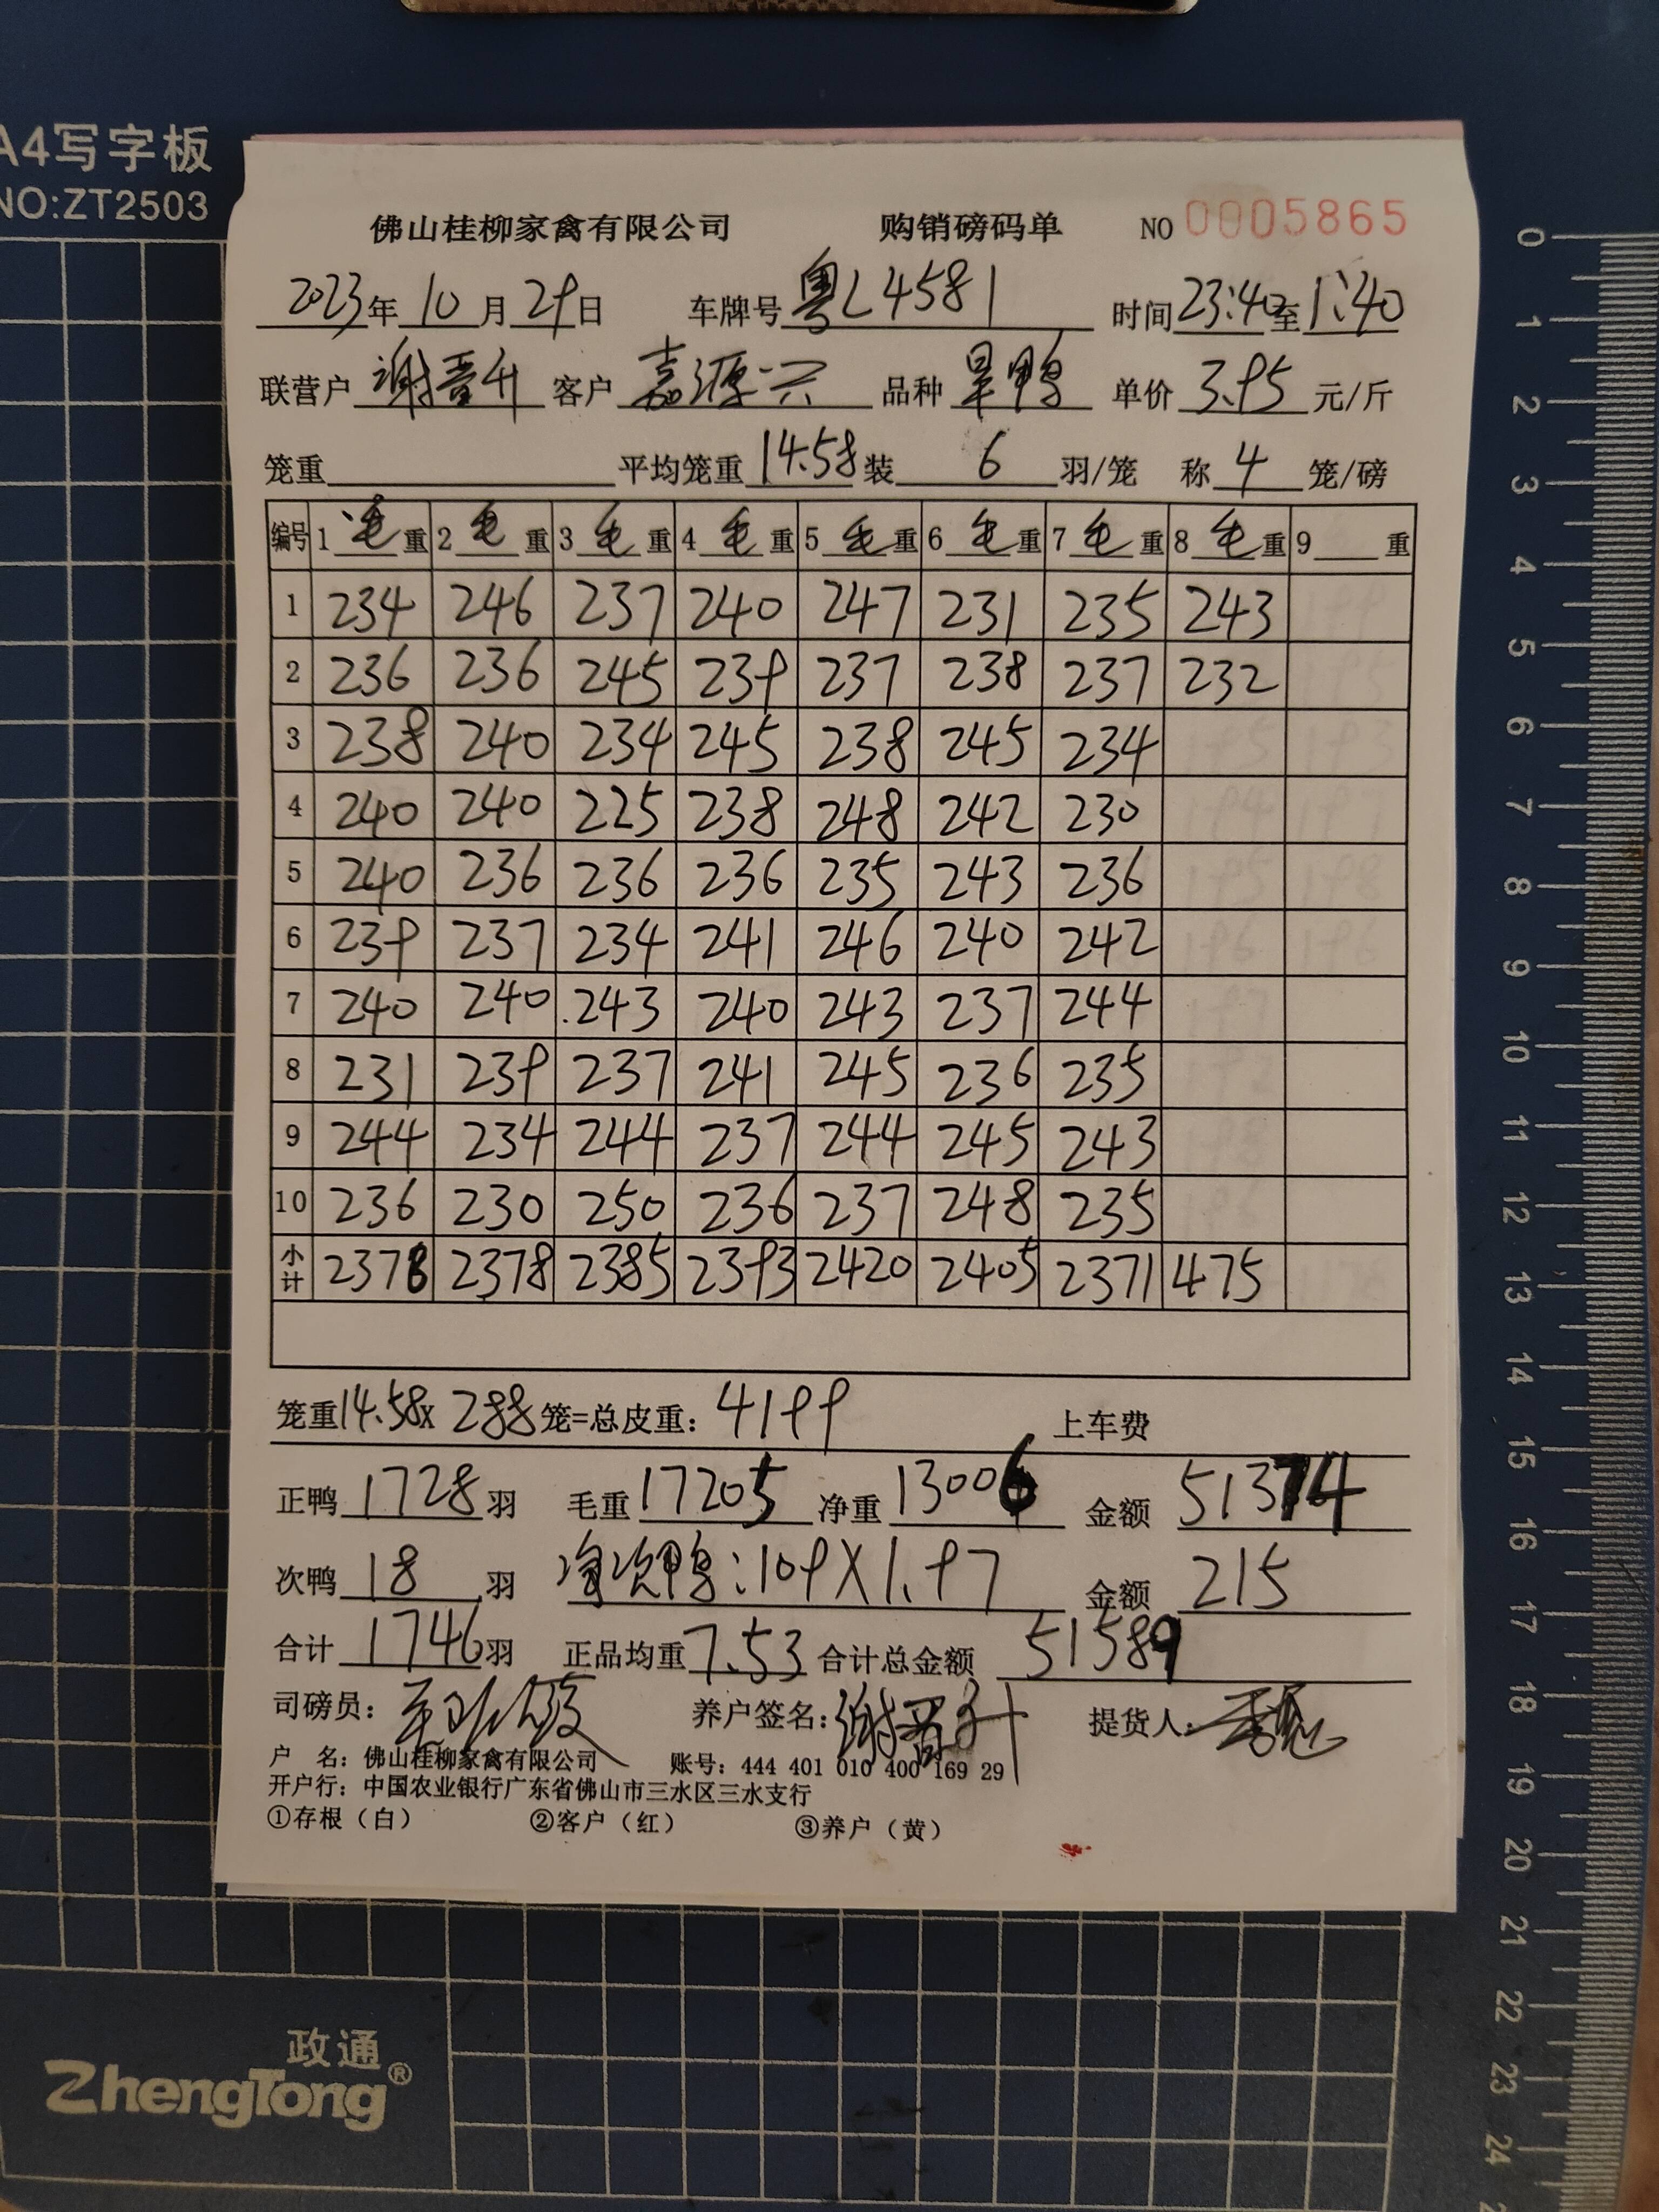 A4写字板
NO:ZT2503
佛山桂柳家禽有限公司 购销磅码单 NO 0005865
2023年10月29日 车牌号 粤L4581 时间 23:40至1:40
联营户 谢晋升 客户 嘉源兴 品种 旱鸭 单价 3.95 元/斤
笼重 平均笼重 14.58 装 6 羽/笼 称 4 笼/磅
编号 1 毛重 2 毛重 3 毛重 4 毛重 5 毛重 6 毛重 7 毛重 8 毛重 9 重
1 234 246 237 240 247 231 235 243
2 236 236 245 239 237 238 237 232
3 238 240 234 245 238 245 234
4 240 240 225 238 248 242 230
5 240 236 236 236 235 243 236
6 239 237 234 241 246 240 242
7 240 240 243 240 243 237 244
8 231 239 237 241 245 236 235
9 244 234 244 237 244 245 243
10 236 230 250 236 237 248 235
小计 2378 2378 2385 2393 2420 2405 2371 475
笼重14.58x 288笼=总皮重: 4199 上车费
正鸭 1728 羽 毛重 17205 净重 13006 金额 51374
次鸭 18 羽 净次鸭:109X1.97 金额 215
合计 1746羽 正品均重 7.53 合计总金额 51589
司磅员: 养户签名: 谢晋升 提货人:
户 名: 佛山桂柳家禽有限公司 账号: 444 401 010 400 169 29
开户行: 中国农业银行广东省佛山市三水区三水支行
①存根（白） ②客户（红） ③养户（黄）
政通
ZhengTong®
0
1
2
3
4
5
6
7
8
9
10
11
12
13
14
15
16
17
18
19
20
21
22
23
24